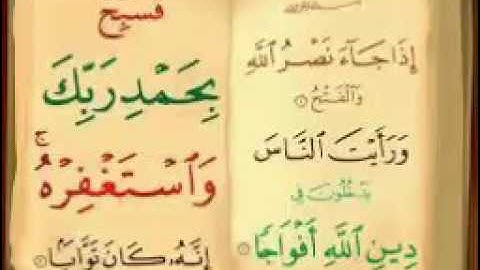 إِذَا جَآءَ نَصْرُ ٱللَّهِ
وَٱلْفَتْحُ ١
وَرَأَيْتَ ٱلنَّاسَ
يَدْخُلُونَ فِى
دِينِ ٱللَّهِ أَفْوَاجًا ٢
فَسَبِّحْ
بِحَمْدِ رَبِّكَ
وَٱسْتَغْفِرْهُ ۚ
إِنَّهُۥ كَانَ تَوَّابًۢا ٣